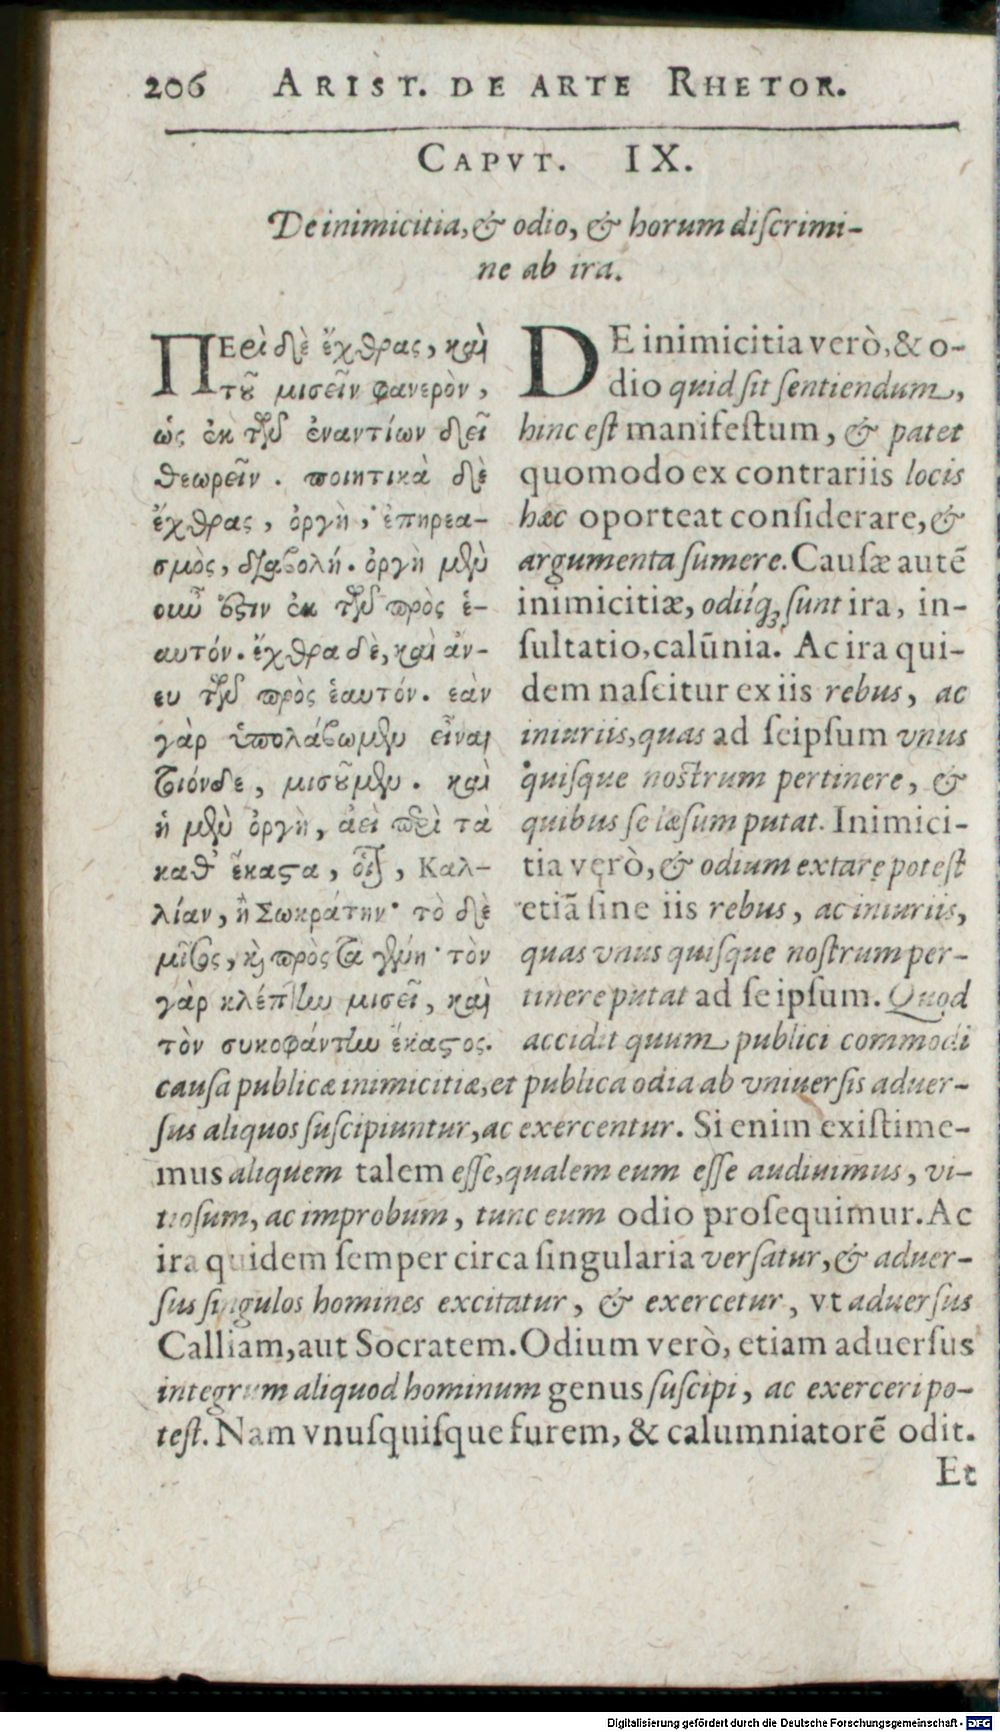 206 ARIST. DE ARTE RHETOR.
CAPVT. IX.
De inimicitia, & odio, & horum diſcrimi-
ne ab ira.
ΠΕρὶ δὲ ἔχθρας, καὶ
τοῦ μισεῖν φανερὸν,
ὡς ἐκ τῶν ἐναντίων δεῖ
θεωρεῖν. ποιητικὰ δὲ
ἔχθρας, ὀργὴ, ἐπηρεα-
σμὸς, διαβολή. ὀργὴ μὲν
οὖν ἔστιν ἐκ τῶν πρὸς ἑ-
αυτόν. ἔχθρα δὲ, καὶ ἄν-
ευ τῶν πρὸς ἑαυτόν. ἐὰν
γὰρ ὑπολάβωμεν εἶναι
τοιόνδε, μισοῦμεν. καὶ
ἡ μὲν ὀργὴ, ἀεὶ περὶ τὰ
καθ' ἕκαστα, οἷον, Καλ-
λίαν, ἢ Σωκράτην· τὸ δὲ
μῖσος, καὶ πρὸς τὰ γένη· τὸν
γὰρ κλέπτην μισεῖ, καὶ
τὸν συκοφάντην ἕκαστος.
DE inimicitia verò, & o-
dio quid ſit ſentiendum,
hinc eſt manifeſtum, & patet
quomodo ex contrariis locis
hæc oporteat conſiderare, &
argumenta ſumere. Cauſæ autē
inimicitiæ, odiíq; ſunt ira, in-
ſultatio, calūnia. Ac ira qui-
dem naſcitur ex iis rebus, ac
iniuriis, quas ad ſeipſum vnus
quiſque noſtrum pertinere, &
quibus ſe læſum putat. Inimici-
tia verò, & odium extare poteſt
etiā ſine iis rebus, ac iniuriis,
quas vnus quiſque noſtrum per-
tinere putat ad ſe ipſum. Quod
accidit quum publici commodi
cauſa publicæ inimicitiæ, et publica odia ab vniuerſis aduer-
ſus aliquos ſuſcipiuntur, ac exercentur. Si enim exiſtime-
mus aliquem talem eſſe, qualem eum eſſe audiuimus, vi-
tioſum, ac improbum, tunc eum odio proſequimur. Ac
ira quidem ſemper circa ſingularia verſatur, & aduer-
ſus ſingulos homines excitatur, & exercetur, vt aduerſus
Calliam, aut Socratem. Odium verò, etiam aduerſus
integrum aliquod hominum genus ſuſcipi, ac exerceri po-
teſt. Nam vnuſquiſque furem, & calumniatorē odit.
Et
Digitalisierung gefördert durch die Deutsche Forschungsgemeinschaft - DFG